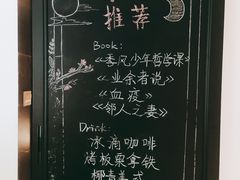 推荐
Book:
《季风少年哲学课》
《业余者说》
《血疫》
《邻人之妻》
Drink:
冰滴咖啡
烤板栗拿铁
椰青美式